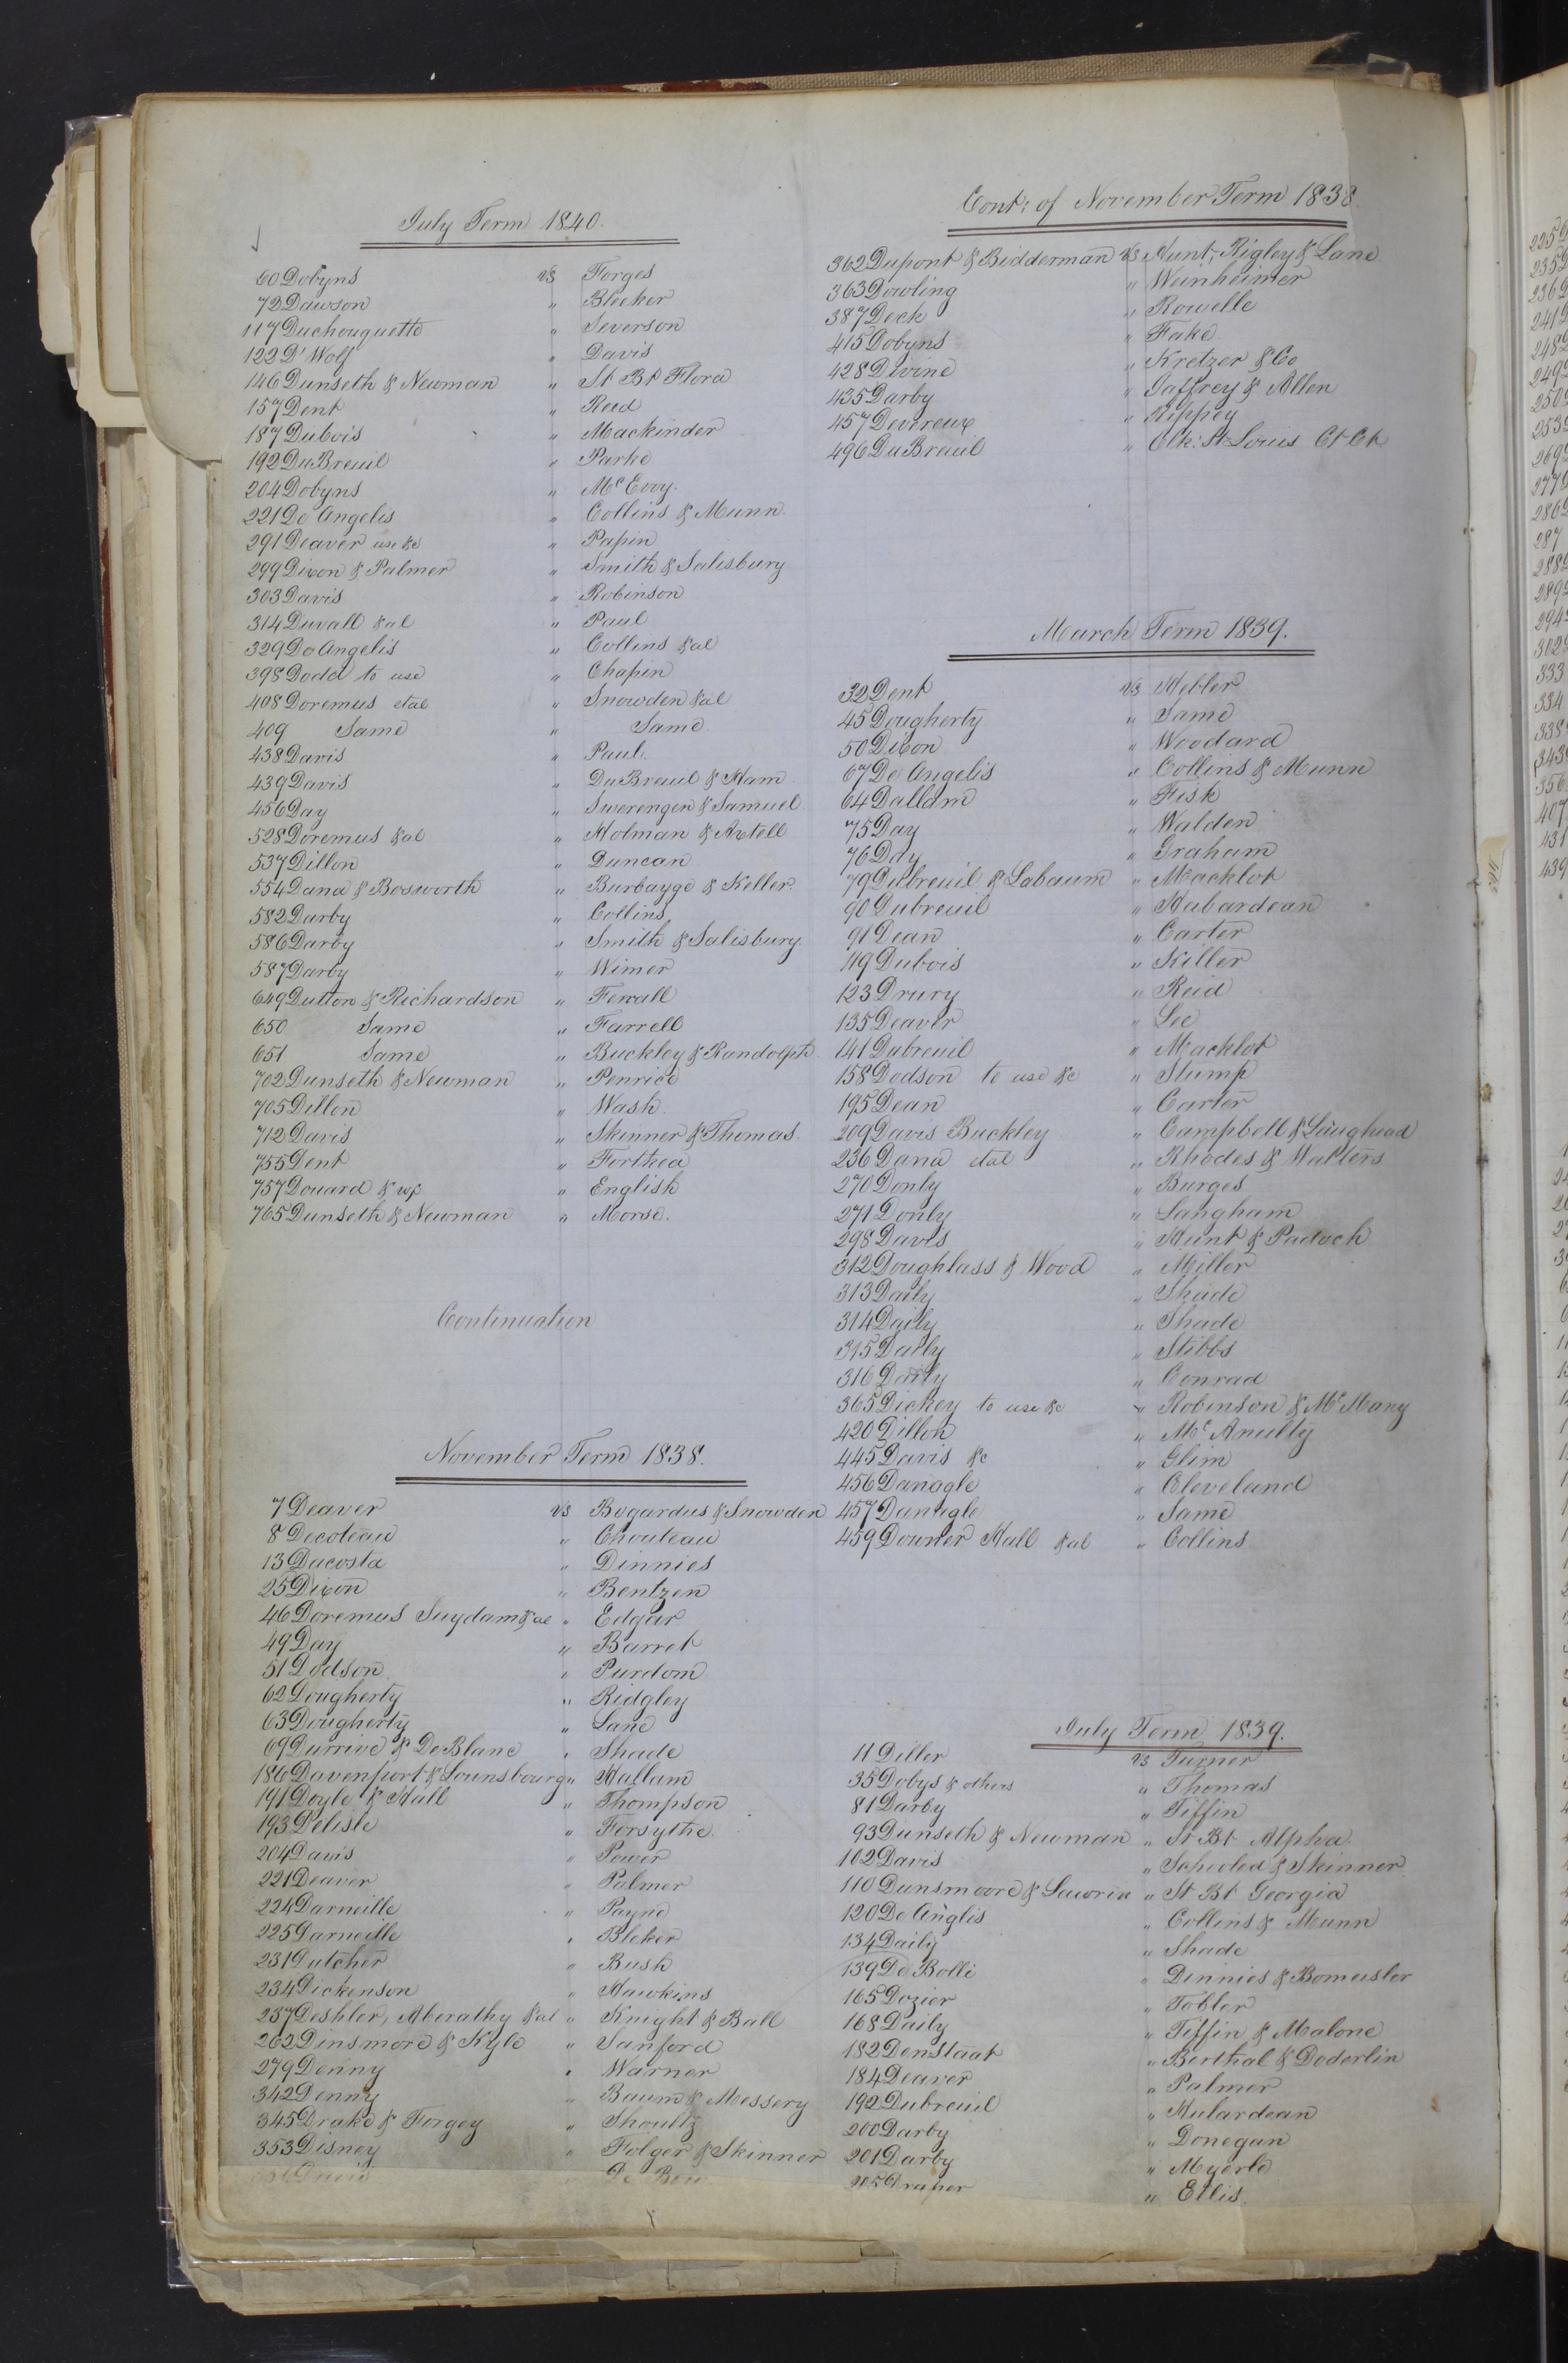 July Term 1840.
60 Dobyns vs Forges
72 Dawson " Bleeker
117 Duchouquette " Severson
122 D'Wolf " Davis
146 Dunseth & Newman " St Bt Flora
157 Dent " Reed
187 Dubois " Mackinder
192 DuBreuil " Parke
204 Dobyns " McEvoy.
221 De Angelis " Collins & Munn.
291 Deaver use &c " Papin
299 Dixon & Palmer " Smith & Salisbury
303 Davis " Robinson
314 Duvall &al " Paul
329 De Angelis " Collins &al
398 Dodd to use " Chapin
408 Doremus etal " Snowden &al
409 Same " Same.
438 Davis " Paul.
439 Davis " DuBreuil & Ham
456 Day " Swerengen & Samuel
528 Doremus &al " Holman & Axtell
537 Dillon " Duncan
554 Dana & Bosworth " Burbayge & Keller.
582 Darby " Collins
586 Darby " Smith & Salisbury.
587 Darby " Wimer
649 Dutton & Richardson " Fewall
650 Same " Farrell
651 Same " Buckley & Randolph.
702 Dunseth & Newman " Penrice
705 Dillon " Wash.
712 Davis " Skinner & Thomas.
755 Dent " Forthea
757 Douard & wf " English
765 Dunseth & Newman " Morse.
Continuation
November Term 1838.
7 Deaver vs Bogardus & Snowden
8 Decoteau " Chouteau
13 Dacosta " Dinnies
25 Dixon " Bentzen
46 Doremus Suydam &al " Edgar
49 Day " Barret
51 Dodson " Purdom
62 Dougherty " Ridgley
63 Dougherty " Lane
69 Durrive & DeBlanc " Shade
186 Davenport & Lounsboury " Hallam
191 Doyle & Hall " Thompson
193 Delisle " Forsythe.
204 Davis " Power
221 Deaver " Palmer
224 Darneille " Payne
225 Darneille " Bleker
231 Dutcher " Bush
234 Dickenson " Hawkins
237 Deshler, Aberathy &al " Knight & Ball
262 Dinsmore & Kyle " Sanford
279 Denny " Warner
342 Denny " Baum & Messery
345 Drake & Forgey " Shoultz
353 Disney " Folger & Skinner
Cont: of November Term 1838.
362 Dupont & Bidderman vs Hunt, Rigley & Lane
363 Dowling " Weinheimer
387 Deck " Rowelle
415 Dobyns " Fake
428 Divine " Kretzer & Co
435 Darby " Jaffrey & Allen
457 Devereux " Rippey
496 DuBreuil " Clk: St Louis Ct Ct
March Term 1839.
32 Dent vs Hebler
45 Dougherty " Same
50 Dixon " Woodard
67 De Angelis " Collins & Munn
64 Dallam " Fisk
75 Day " Walden
76 Day " Graham
79 Dubreuil & Labaum " Macklot
90 Dubreuil " Hubardean
91 Dean " Carter
119 Dubois " Killer
123 Drury " Reid
135 Deaver " Lee
141 Dubreuil " Macklot
158 Dodson to use &c " Stump
195 Dean " Carter
209 Davis Buckley " Campbell & Laughead
236 Dana etal " Rhodes & Walters
270 Donly " Burges
271 Donly " Langham
298 Daves " Hunt & Padock
312 Doughlass & Wood " Miller
313 Daily " Shade
314 Daily " Shade
315 Daily " Stibbs
316 Daily " Conrad
365 Dickey to use &c " Robinson & McMany
420 Dillon " McAnulty
445 Davis &c " Glim
456 Danagle " Cleveland
457 Danagle " Same
459 Downer Hall &al " Collins
July Term 1839.
11 Diller vs Turner
35 Dobys & others " Thomas
81 Darby " Tiffin
93 Dunseth & Newman " St Bt Alpha.
102 Davis " Schooled & Skinner
110 Dunsmoore & Lawrin " St Bt Georgia
120 De Anglis " Collins & Munn
134 Daily " Shade
139 De Bolli " Dinnies & Bomeisler
165 Dozier " Tobler
168 Daily " Tiffin & Malone
182 Denstaat " Berthal & Doderlin
184 Deaver " Palmer
192 Dubreuil " Hulardean
200 Darby " Donegan
201 Darby " Myerle
205 Draper " Ellis.